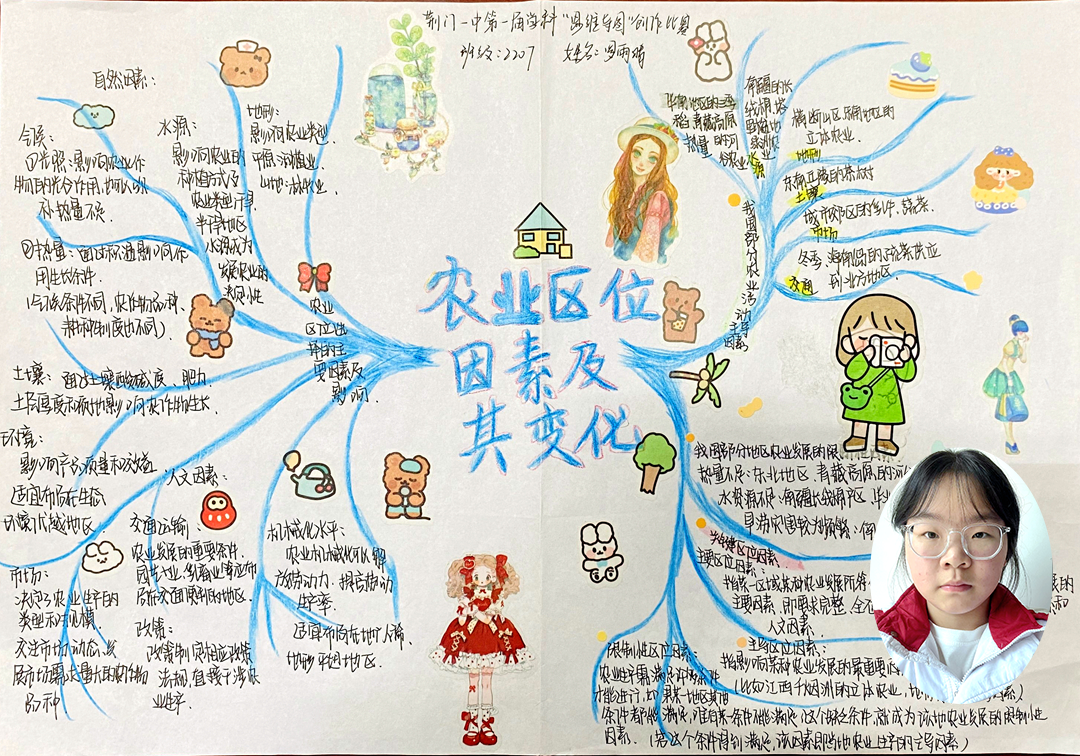 荆门一中第一届学科“思维导图”创作比赛
班级：2207 姓名：罗雨
农业区位
因素及
其变化
自然因素：
气候：
①光照：影响农业作
物的光合作用，也可以
补热量不足
②热量：通过积温影响作
用生长条件
（气候条件不同，农作物品种、
耕种制度也不同）
水源：
影响农业的
种植方式及
农业类型，干旱
半干旱地区
水源成为
发展农业的
决定性
地形：
影响农业类型
平原：种植业
山地：林牧业
农业
区位选
择的主
要因素及
影响
土壤：通过土壤酸碱度、肥力、
土层厚度影响农作物生长
环境：
影响产品质量和效益
适宜布局在生态
环境优越地区
市场：
决定了农业生产的
类型和规模
关注市场动态，发
展市场需求量大的农作物
品种
人文因素：
交通运输：
农业发展的重要条件，
园艺业、乳畜业等应布
局在交通便利的地区
政策：
政策制定相应政策
法规，直接干涉农
业生产
机械化水平：
农业机械化可以解
放劳动力，提高劳动
生产率
适宜布局在地广人稀、
地形平坦地区
我国部分农业活动主导因素
热量
水源
横断山区，热带地区的
立体农业
地形
东南丘陵的茶树
土壤
城市郊区的乳牛、蔬菜
市场
冬季，海南岛的蔬菜供应
到北方地区
交通
我国部分地区农业发展的限
热量不足：东北地区、青藏高原的
水资源不足：南疆
主要区位因素：
指某一区域某种农业发展所
主要因素，即要求完整、全
人文因素
主导区位因素：
指影响某种农业发展的最重要
（比如江西千烟洲的立体农业，地
限制性区位因素：
农业生产需满足许多条件
才能进行，如果某一地区其他
条件都能满足，唯有某一条件不能满足，这个缺乏条件，就成为该地农业发展的限制性
因素。（若这个条件得到满足，该因素即当地农业生产的主导因素）